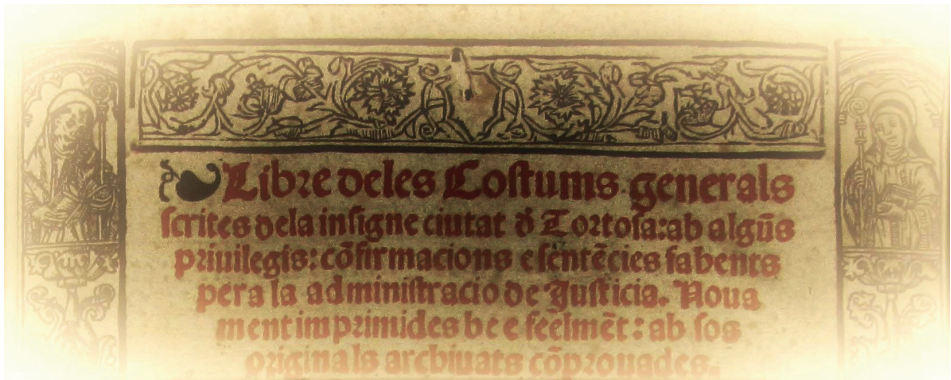 Libre deles Costums generals
scrites dela insigne ciutat d̄ Tortosa: ab algūs
priuilegis: cōfirmacions e sentēcies fahents
per a la administracio de Justicia. Noua
ment imprimides be e feelmēt: ab sos
originals archiuats cōprouades.